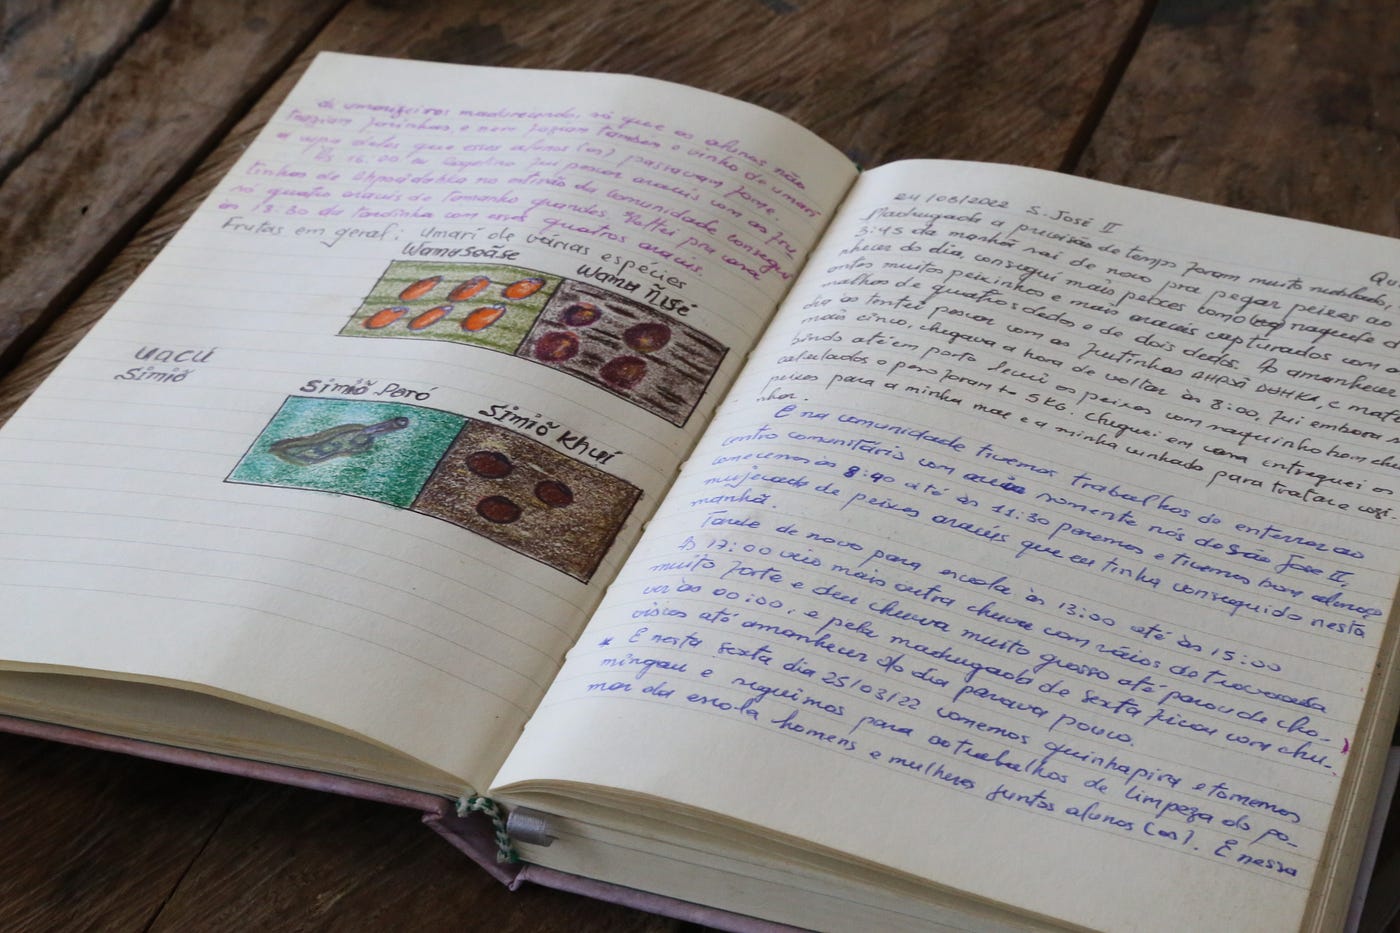 de umarizeiros madurecendo, só que os alunos não
traziam farinhas, e nem faziam também o vinho de umari
a culpa deles que esses alunos (as) passavam fome.
Às 16:00 fui pescar aracús com as fru
tinhas de no estirão da comunidade consegui
só quatro aracús de tamanho grandes. Voltei pra casa
às 18:30 da tardinha com esses quatros aracús.
Frutas em geral: Umari de várias espécies
Wamusoãse
Wamu Ñisé
uacú
Simiõ
Simiõ Peró
Simiõ Khuí
24/03/2022 S. José II Qu
Madrugada a previsão de tempo foram muito nublado,
3:45 da manhã sai de novo pra pegar peixes ao
nhecer do dia, consegui mais peixes como naquele d
antes muitos peixinhos e mais aracús capturados com a
malhos de quatros dedos e de dois dedos. Ao amanhecer
dia às tentei pescar com as frutinhas AHPÕÃ DUHKA, e matei
mais cinco, chegava a hora de voltar às 8:00, fui embora su
bindo até em porto levei os peixes com maquinho bem che
calculados o peso foram + 5KG. Cheguei em casa entreguei os
peixes para a minha mãe e a minha cunhada para tratar e cozi
nhar.
E na comunidade tivemos trabalhos de enferrar ao
centro comunitário com somente nós de São José II,
comecemos às 8:40 até às 11:30 paremos e tivemos bom almoço
mujecado de peixes aracús que eu tinha conseguido nesta
manhã.
Tarde de novo para escola às 13:00 até às 15:00
Às 17:00 veio mais outra chuva com vários de trovoada
muito forte e deu chuva muito grosso até parou de cho-
ver às 00:00, e pela madrugada de sexta ficou com chu.
viscos até amanhecer do dia parava pouco.
* E nesta sexta dia 25/03/22 comemos quinhapira e tomemos
mingau e seguimos para os trabalhos de limpeza do po-
mar da escola homens e mulheres juntos alunos (as). E nessa